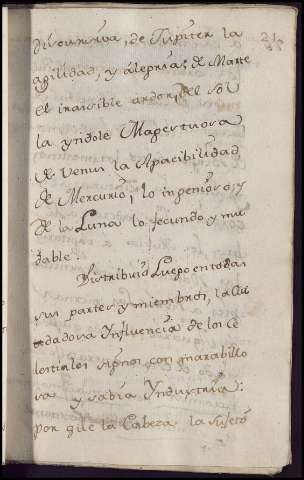 discursiva, de Jupiter la
agilidad, y alegria; de Marte
el iraisible ardor, del Sol
la yndole Magestuosa
de Venus la Apacibilidad
de Mercurio, lo ingenioso, y
de la Luna lo fecundo y mu
dable.
Distribuió Luego en todas
sus partes y miembros, la
dadora Ynfluencia de los Ce
lestiales signos con marabillo
sa y sabia Yndustria:
por que la Cabeza la sujetó